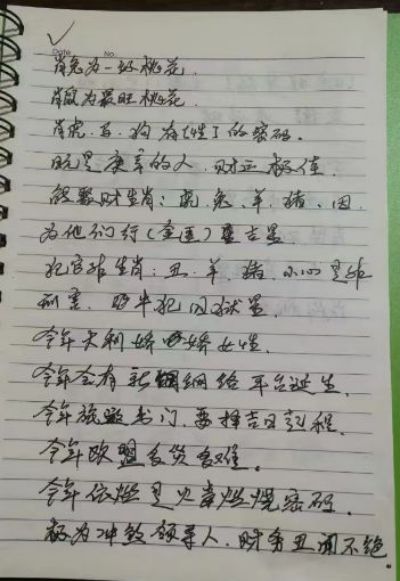 Date No.
肖兔为一好桃花.
肖鼠为最旺桃花.
肖虎.马.狗有(性)的密码.
既是庚辛的人.财运极值.
能聚财生肖:虎.兔.羊.猪.因
为他们行(金运)重吉星
犯官非生肖:丑.羊.猪.小心是非
刑害.呀牛犯囚狱星.
今年大利娇娇女性.
今年会有新网络平台诞生.
今年旅遊出门.要择吉日起程.
今年欧盟多灾多难。
今年依燃是火葬燃烧密码.
极为冲煞领导人.财务丑闻不绝